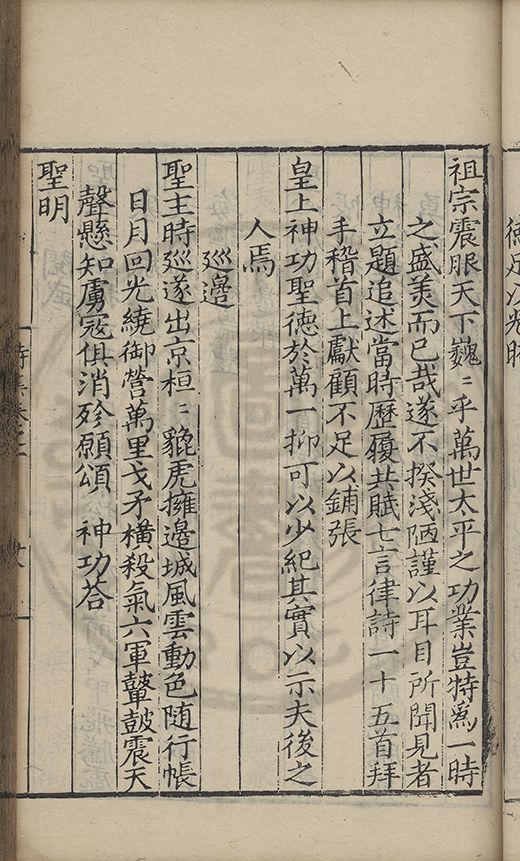 祖宗震服天下巍〻乎萬世太平之功業豈特爲一時
之盛美而已哉遂不揆淺陋謹以耳目所聞見者
立題追述當時歷履共賦七言律詩一十五首拜
手稽首上獻顧不足以鋪張
皇上神功聖德於萬一抑可以少紀其實以示夫後之
人焉
巡邊
聖主時廵遂出京桓〻貔虎擁邊城風雲動色随行帳
日月回光繞御營萬里戈矛橫殺氣六軍鼙皷震天
聲懸知虜冦俱消殄願頌 神功荅
聖明